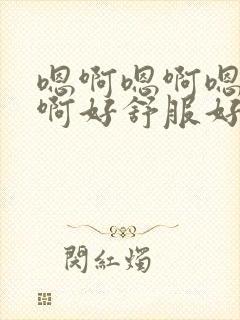 嗯啊嗯啊嗯
啊好舒服好
閃紅燭